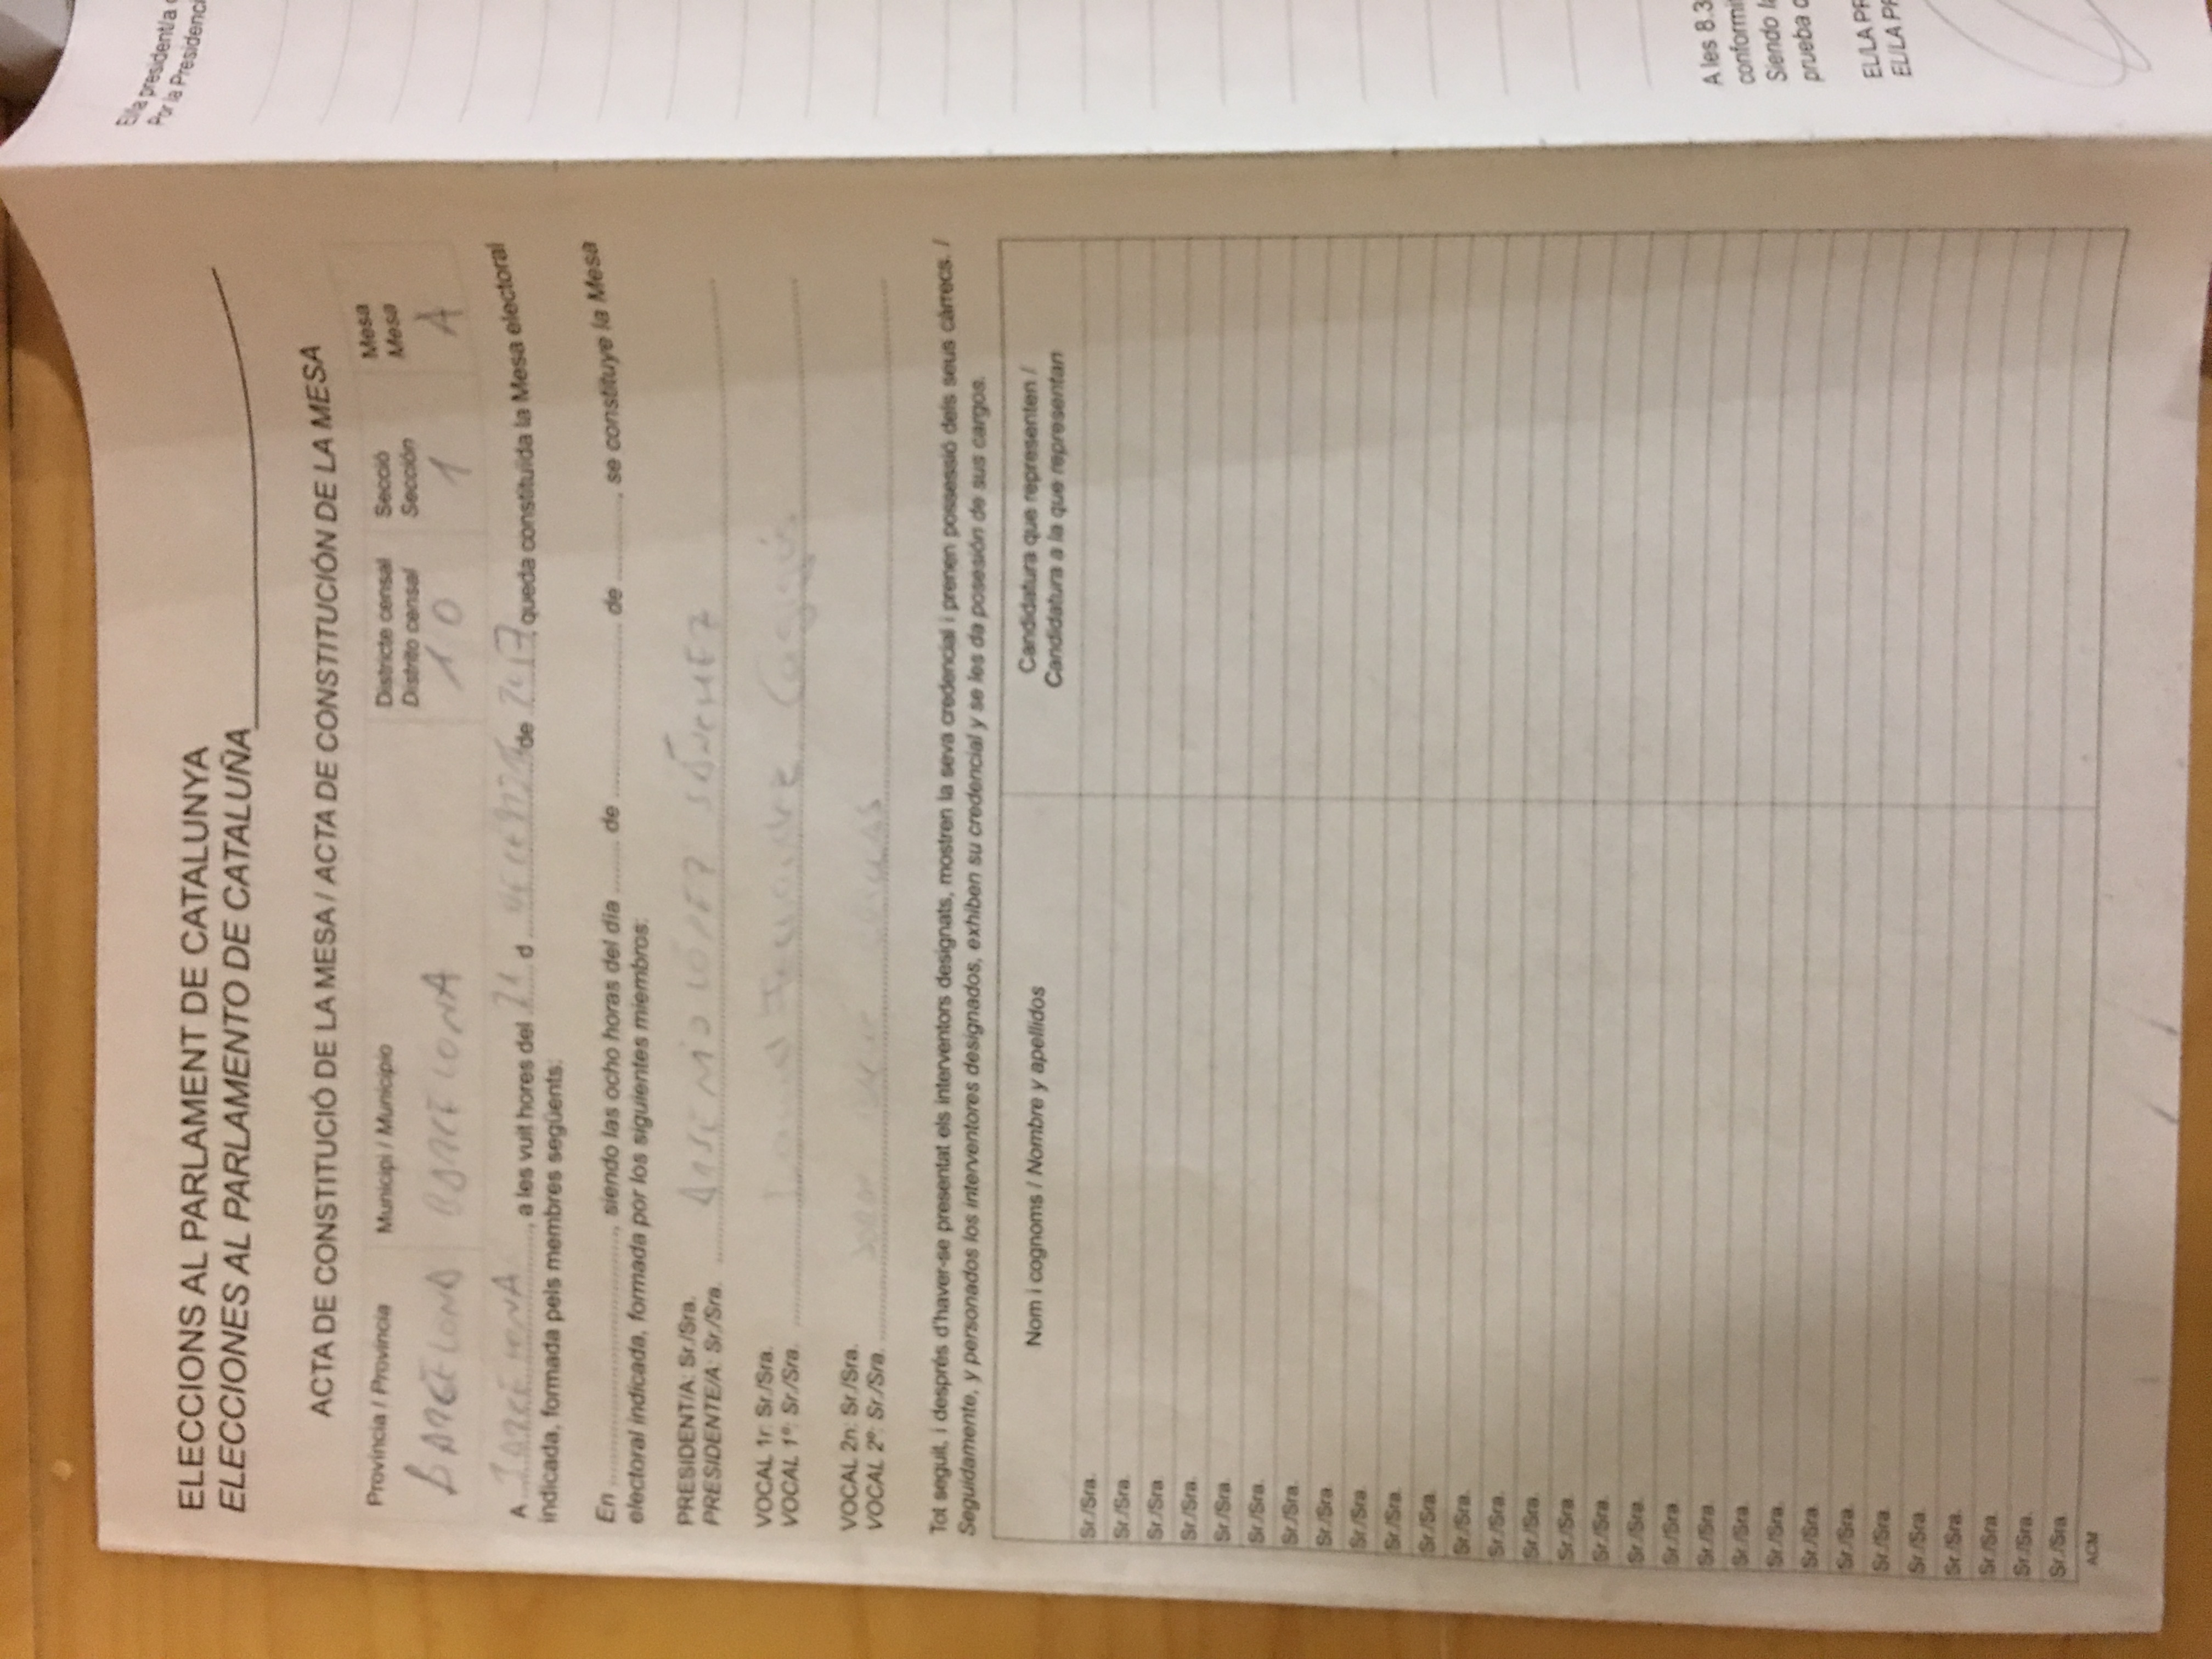 ELECCIONS AL PARLAMENT DE CATALUNYA
ELECCIONES AL PARLAMENTO DE CATALUÑA
ACTA DE CONSTITUCIÓ DE LA MESA / ACTA DE CONSTITUCIÓN DE LA MESA
Província / Provincia Municipi / Municipio Districte censal Secció Mesa
Distrito censal Sección Mesa
BARCELONA BARCELONA 10 1 A
A BARCELONA, a les vuit hores del 21 d de 2017, queda constituïda la Mesa electoral
indicada, formada pels membres següents:
En ........, siendo las ocho horas del día ........ de ........ de ........, se constituye la Mesa
electoral indicada, formada por los siguientes miembros:
PRESIDENT/A: Sr./Sra.
PRESIDENTE/A: Sr./Sra. ARSENIO LÓPEZ SÁNCHEZ
VOCAL 1r: Sr./Sra.
VOCAL 1º: Sr./Sra.
VOCAL 2n: Sr./Sra.
VOCAL 2º: Sr./Sra.
Tot seguit, i després d'haver-se presentat els interventors designats, mostren la seva credencial i prenen possessió dels seus càrrecs. /
Seguidamente, y personados los interventores designados, exhiben su credencial y se les da posesión de sus cargos.
Nom i cognoms / Nombre y apellidos Candidatura que representen /
Candidatura a la que representan
Sr./Sra.
Sr./Sra.
Sr./Sra.
Sr./Sra.
Sr./Sra.
Sr./Sra.
Sr./Sra.
Sr./Sra.
Sr./Sra.
Sr./Sra.
Sr./Sra.
Sr./Sra.
Sr./Sra.
Sr./Sra.
Sr./Sra.
Sr./Sra.
Sr./Sra.
Sr./Sra.
Sr./Sra.
Sr./Sra.
Sr./Sra.
Sr./Sra.
Sr./Sra.
Sr./Sra.
Sr./Sra.
Sr./Sra.
Sr./Sra.
Sr./Sra.
Sr./Sra.
ACM
El/la president/a
Por la Presidenci
A les 8.3
conformi
Siendo la
prueba
EL/LA PR
EL/LA PR